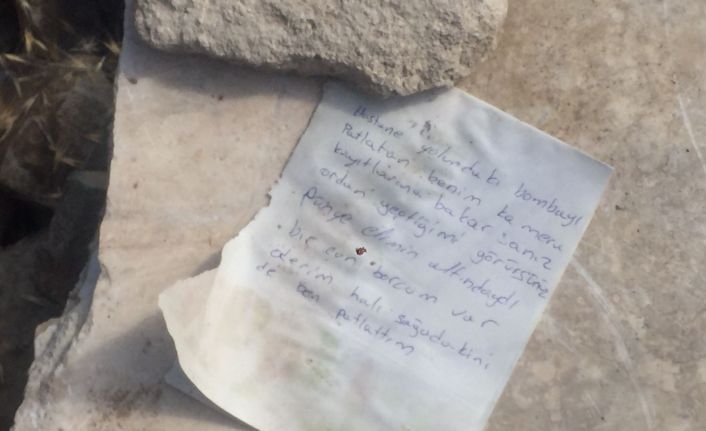 Hastane yolundaki bombayı
Patlatan benim kamera
kayıtlarına bakarsanız
ordan yaptiğimi görürsünüz
Panye elimin altındaydı
bir can borcum var
oderim halı sağadakini
de ben patlattım